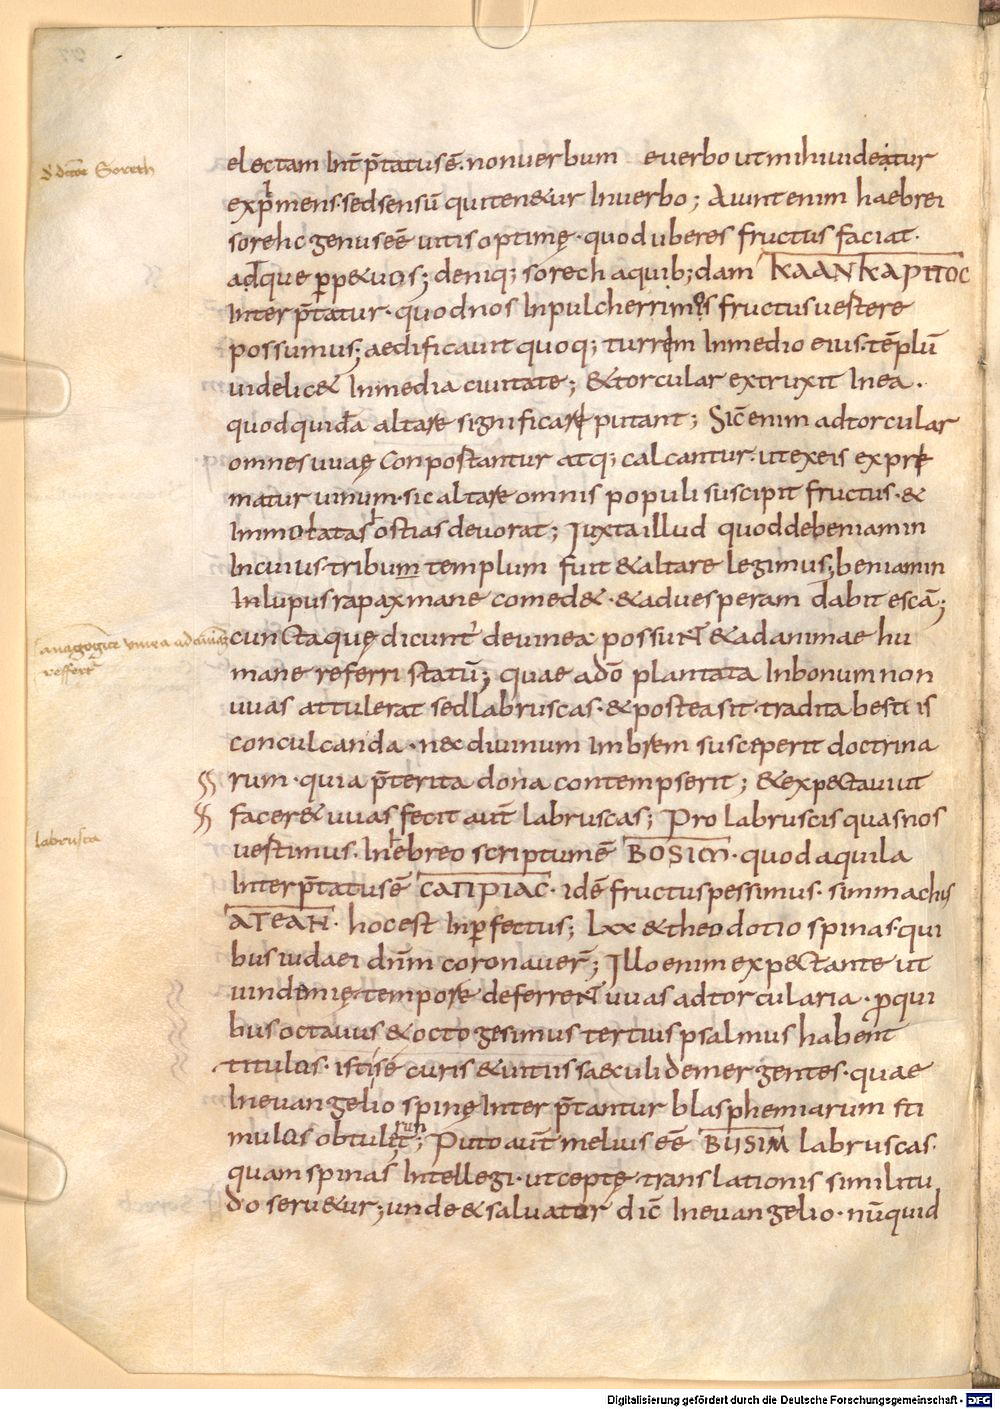 d' dictõe Soreth
electam Int̃p̃tatusẽ. nonuerbum euerbo utmihiuideatur
exp̃mens. sedsensũ quiteneturInuerbo; Aiuntenim haebrei
sorehc genuseẽ uitisoptimę. quoduberes fructus faciat.
adque perpetuos; deniq; sorech aquib;dam KAΛΛΙΚΑΡΠΟC
Interp̃tatur. quodnos Inpulcherrimos fructusuertere
possumus; aedificauit quoq; turrem Inmedio eius. tẽplũ
uidelic& Inmedia ciuitate; &torcular extruxit Inea.
quodquidã altare significare putant; Sic̃enim adtorcular
omnesuuaę Conpostantur atq; calcantur. utexeis expri
matur uinum. sicaltare omnis populi suscipit fructus. &
Immolatas ostias deuorat; Iuxtaillud quoddebeniamin
Incuius. tribum templum fuit &altare legimus; beniamin
Inlupusrapaxmane comed&. &aduesperam dabit escã;
anagogice vinea ad animã
reffert̃
cunctaquę dicunt̃ deuinea possunt &adanimae hu
mane referri statũ; quae adõ plantata Inbonumnon
uuas attulerat sedlabruscas. &posteasit. tradita bestiis
conculcanda. nec diuinum Imbrem susceperit doctrina
rum. quia p̃terita dona contempserit; &expectauiut
facer& uuas fecit aut̃ labruscas; Pro labruscis quasnos
labrusca
uestimus. Inhebreo scriptumẽ BOSIM. quodaquila
Interp̃tatusẽ CAΠPIAC. idẽ fructuspessimus. simmachus
ATEAΗ. hocest Inp̱fectus; Lxx &theodotio spinas. qui
busiudaei dñm coronauer̃; Illoenimexpectante ut
uindemię. tempore deferrent uuas adtorcularia. p̱qui
busoctauus &octogesimus tertiuspsalmus habent
titulos. istise curis &uitiis saeculidemergentes. quae
Ineuangelio spinę Interp̃tantur blasphemiarum sti
mulos obtulerunt; Puto aut̃ melius eẽ BUSIM labruscas.
quamspinas Intellegi. utceptę translationis similitu
do seru&ur; unde&saluator dic̃ Ineuangelio. nũquid
Digitalisierung gefördert durch die Deutsche Forschungsgemeinschaft - DFG